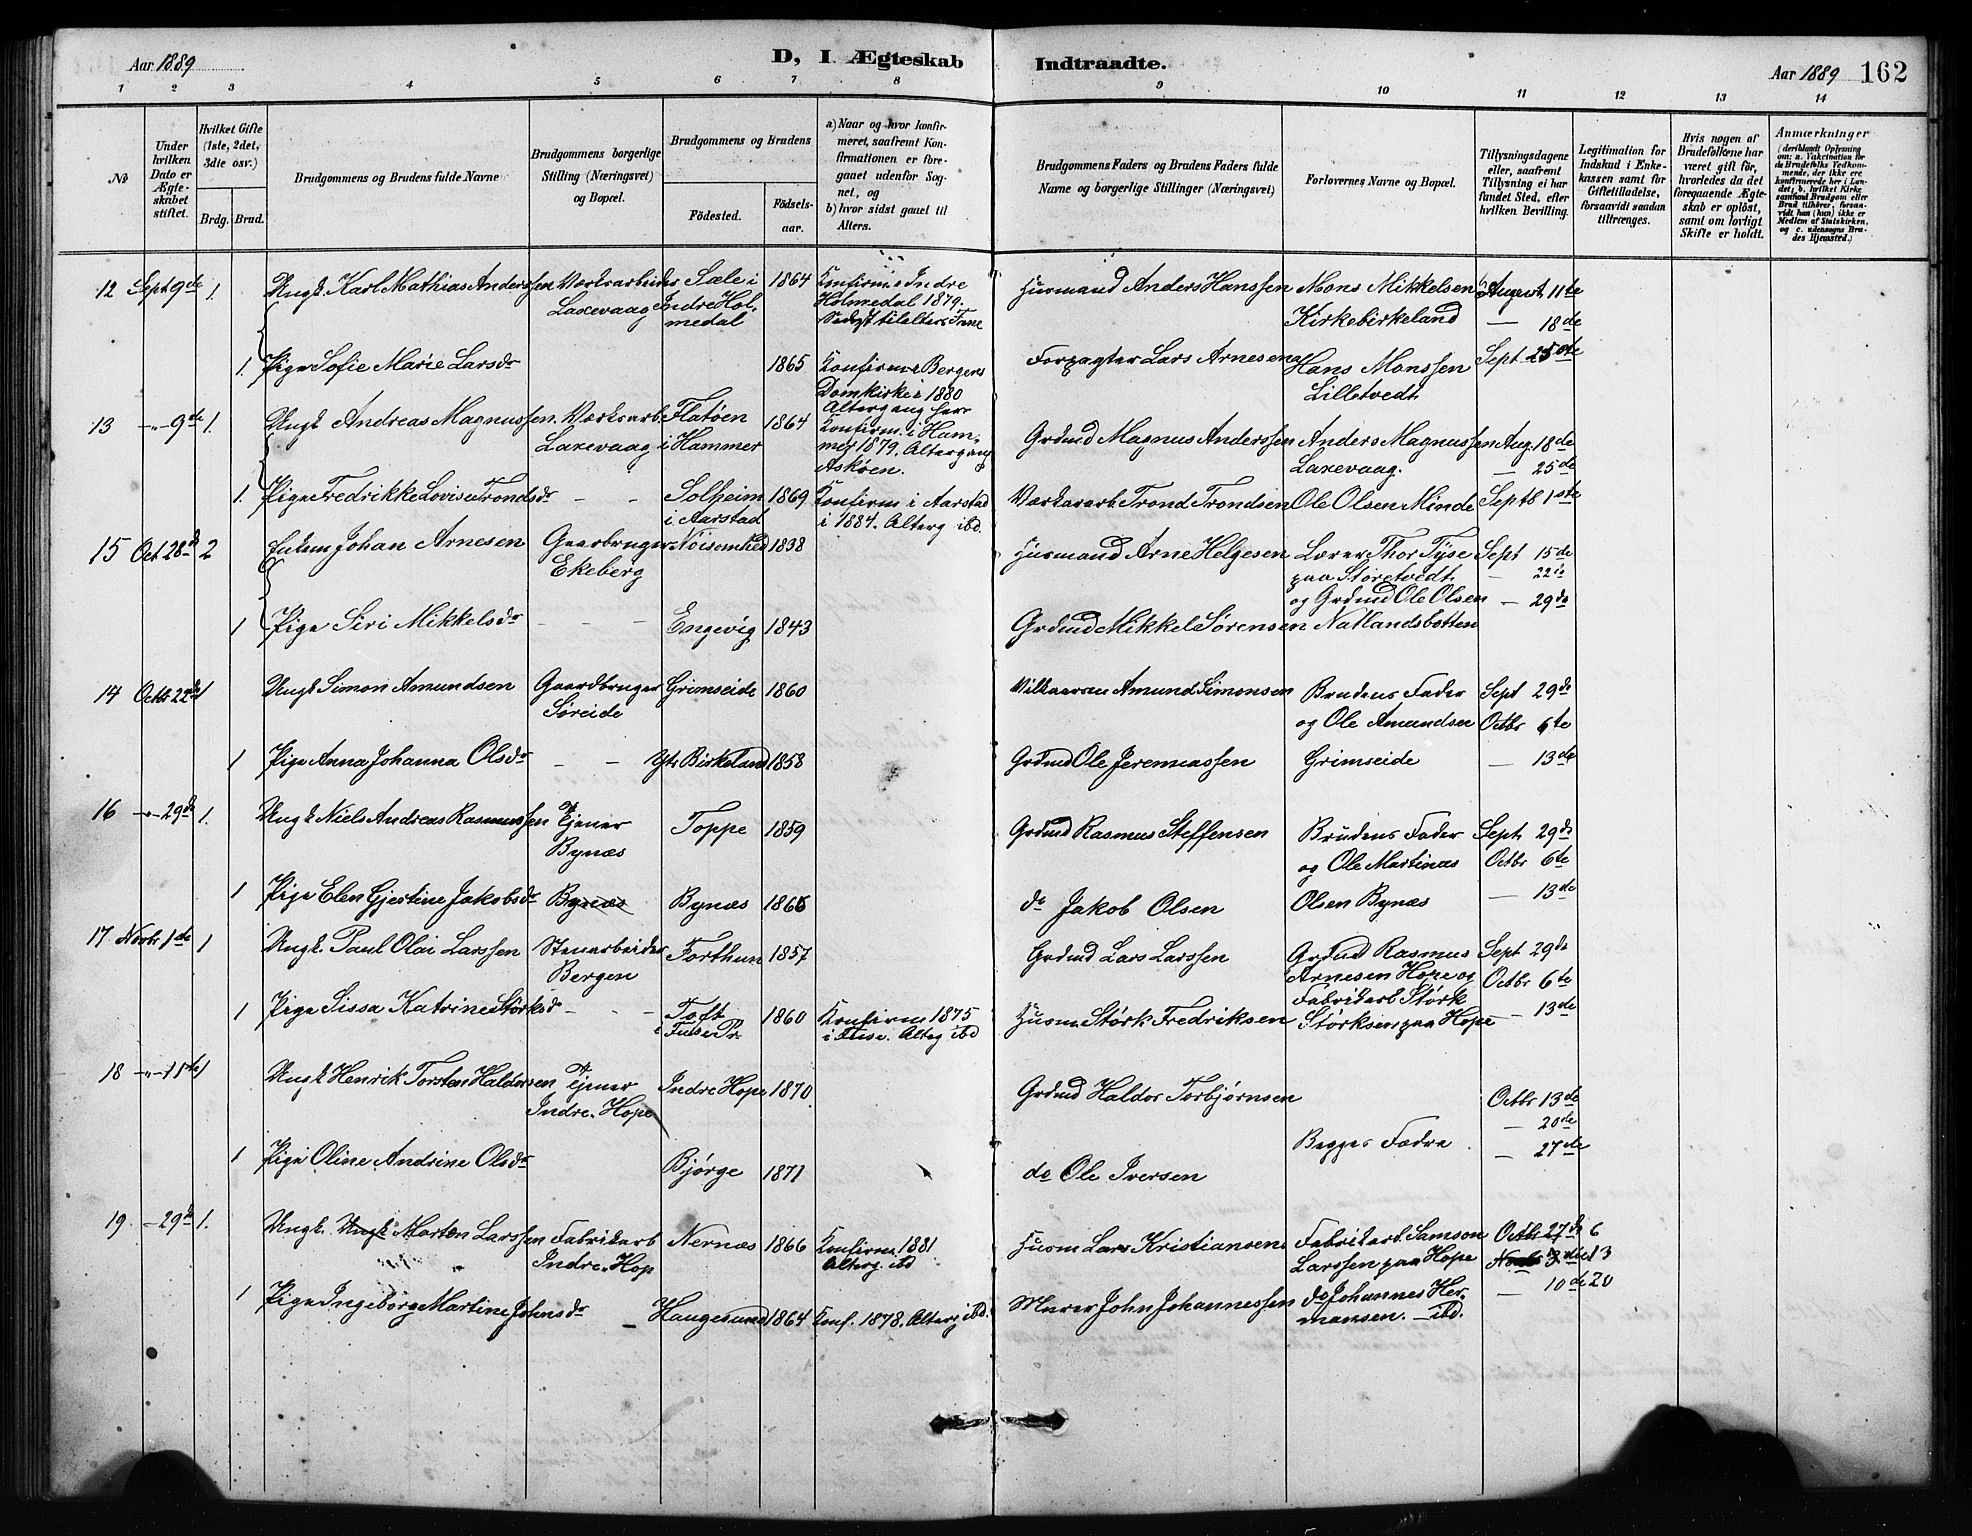 Aar 1889
D, I Ægteskab Indtraadte.
Aar 1889 162
1 2 3 4 5 6 7 8 9 10 11 12 13 14
No
Under hvilken Dato er Ægteskabet stiftet.
Hvilket Gifte (1ste, 2det, 3die osv.)
Brdg. Brud.
Brudgommens og Brudens fulde Navne
Brudgommens borgerlige Stilling (Næringsvei) og Bopæl.
Brudgommens og Brudens
Fødested.
Fødselsaar.
a) Naar og hvor konfirmeret, saafremt Konfirmationen er foregaaet udenfor Sognet, og
b) hvor sidst gaaet til Alters.
Brudgommens Faders og Brudens Faders fulde Navne og borgerlige Stillinger (Næringsvei)
Forlovernes Navne og Bopæl.
Tillysningsdagene eller, saafremt Tillysning ei har fundet Sted, efter hvilken Bevilling.
Legitimation for Indskud i Enkekassen samt for Giftetilladelse, forsaavidt saadan tiltrænges.
Hvis nogen af Brudefolkene har været gift før, hvorledes da det foregaaende Ægteskab er opløst, samt om lovligt Skifte er holdt.
Anmærkninger (deriblandt Oplysning om: a. Vakcination for de Brudefolks Vedkommende, der ikke ere konfirmerede her i Landet; b. hvilket Kirkesamfund Brudgom eller Brud tilhører, forsaavidt han (hun) ikke er Medlem af Statskirken, og c. udensogns Brudes Hjemsted.)
12 Sept 9de 1. Ungk. Karl Mathias Anderssen Værksarbeider Sæle i 1864 Konfirm. Indre Husmand Anders Hanssen Mons Mikkelsen August 11te
Laxevaag Indre Hol- Holmedal 1879. Kirkebirkeland — 18de
medal Sidst til alters
1. Pige Sofie Marie Larsdr 1865 Konfirm Bergens Forpagter Lars Arnesen Hans Monssen Sept
Domkirke i 1880 Lilletvedt
Altergang her
13 -"- 9de 1. Ungk Andreas Magnussen Værksarb. Flatøen 1864 Konfirm. i Ham- Grdmd Magnus Anderssen Anders Magnussen Aug. 18de
Laxevaag i Hammer mer 1879. Altergang Laxevaag. — 25de
Askøen.
1. Pige Fredrikke Lovise Trondsdr - - Solheim 1869 Konfirm i Aarstad Værksarb Trond Trondsen Ole Olsen Minde Septb 1ste
i Aarstad i 1884. Alterg ibd.
15 Oct 28de 2 Enkem Johan Arnesen Gaardbruger Nøisomhed 1838 Husmand Arne Helgesen Lærer Thor Tyse Sept 15de
Ekeberg paa Storetvedt — 22de
og Grdmd Ole Olsen — 29de
1 Pige Siri Mikkelsdr - - - Engevig 1843 Grdmd Mikkel Sørensen Natlandsbotten
14 Octb 22de 1 Ungk Simon Amundsen Gaardbruger Grimseide 1860 Vilkaarsm Amund Simonsen Brudens Fader Sept 29de
Søreide og Ole Amundsen Octbr 6te
1 Pige Anna Johanna Olsdr - - Yt. Birkeland 1858 Grdmd Ole Jeremiassen Grimseide — 13de
16 -"- 29de 1. Ungk Niels Andreas Rasmussen Tjener Toppe 1859 Grdmd Rasmus Steffensen Brudens Fader Sept. 29de
Bynæs og Ole Martinus Octbr 6te
1 Pige Elen Gjertine Jakobsdr Bynæs Bynæs do Jakob Olsen Olsen Bynæs — 13de
17 Novbr 1de 1 Ungk. Paul Olai Larssen Stenarbeider Forthun 1857 Grdmd Lars Larssen Grdmd Rasmus Sept 29de
Bergen Arnesen Hope og Octbr 6te
1 Pige Sissa Katrine Størksd - - - Toft 1860 Konfirm 1875 Husm Størk Fredriksen Fabrikarb Størk — 13de
i Fuse Pr. i Fuse. Alterg ibd Størksen paa Hope
18 -"- 11te 1 Ungk Henrik Torsten Haldorsen Tjener Indre Hope 1870 Grdmd Haldor Torbjørnsen Octbr 13de
Indre Hope — 20de
1 Pige Oline Andrine Olsdr Bjørge 1871 do Ole Iversen Begges Fædre — 27de
19. — 29de 1. Ungk. Ungk Morten Larssen Fabrikarb Nernæs 1866 Konfirm. 1881 Husm Lars Kristiansen Fabrikarb Samson Octbr 27de 6
Indre Hop Alterg. ibd Larssen paa Hope Novbr 3die 13
1 Pige Ingeborg Martine Johnsdr — Haugesund 1864 Konf. 1878. Alterg ibd. Murer John Johannessen do Johannes Her- — 10de 20
mansen. — ibd.